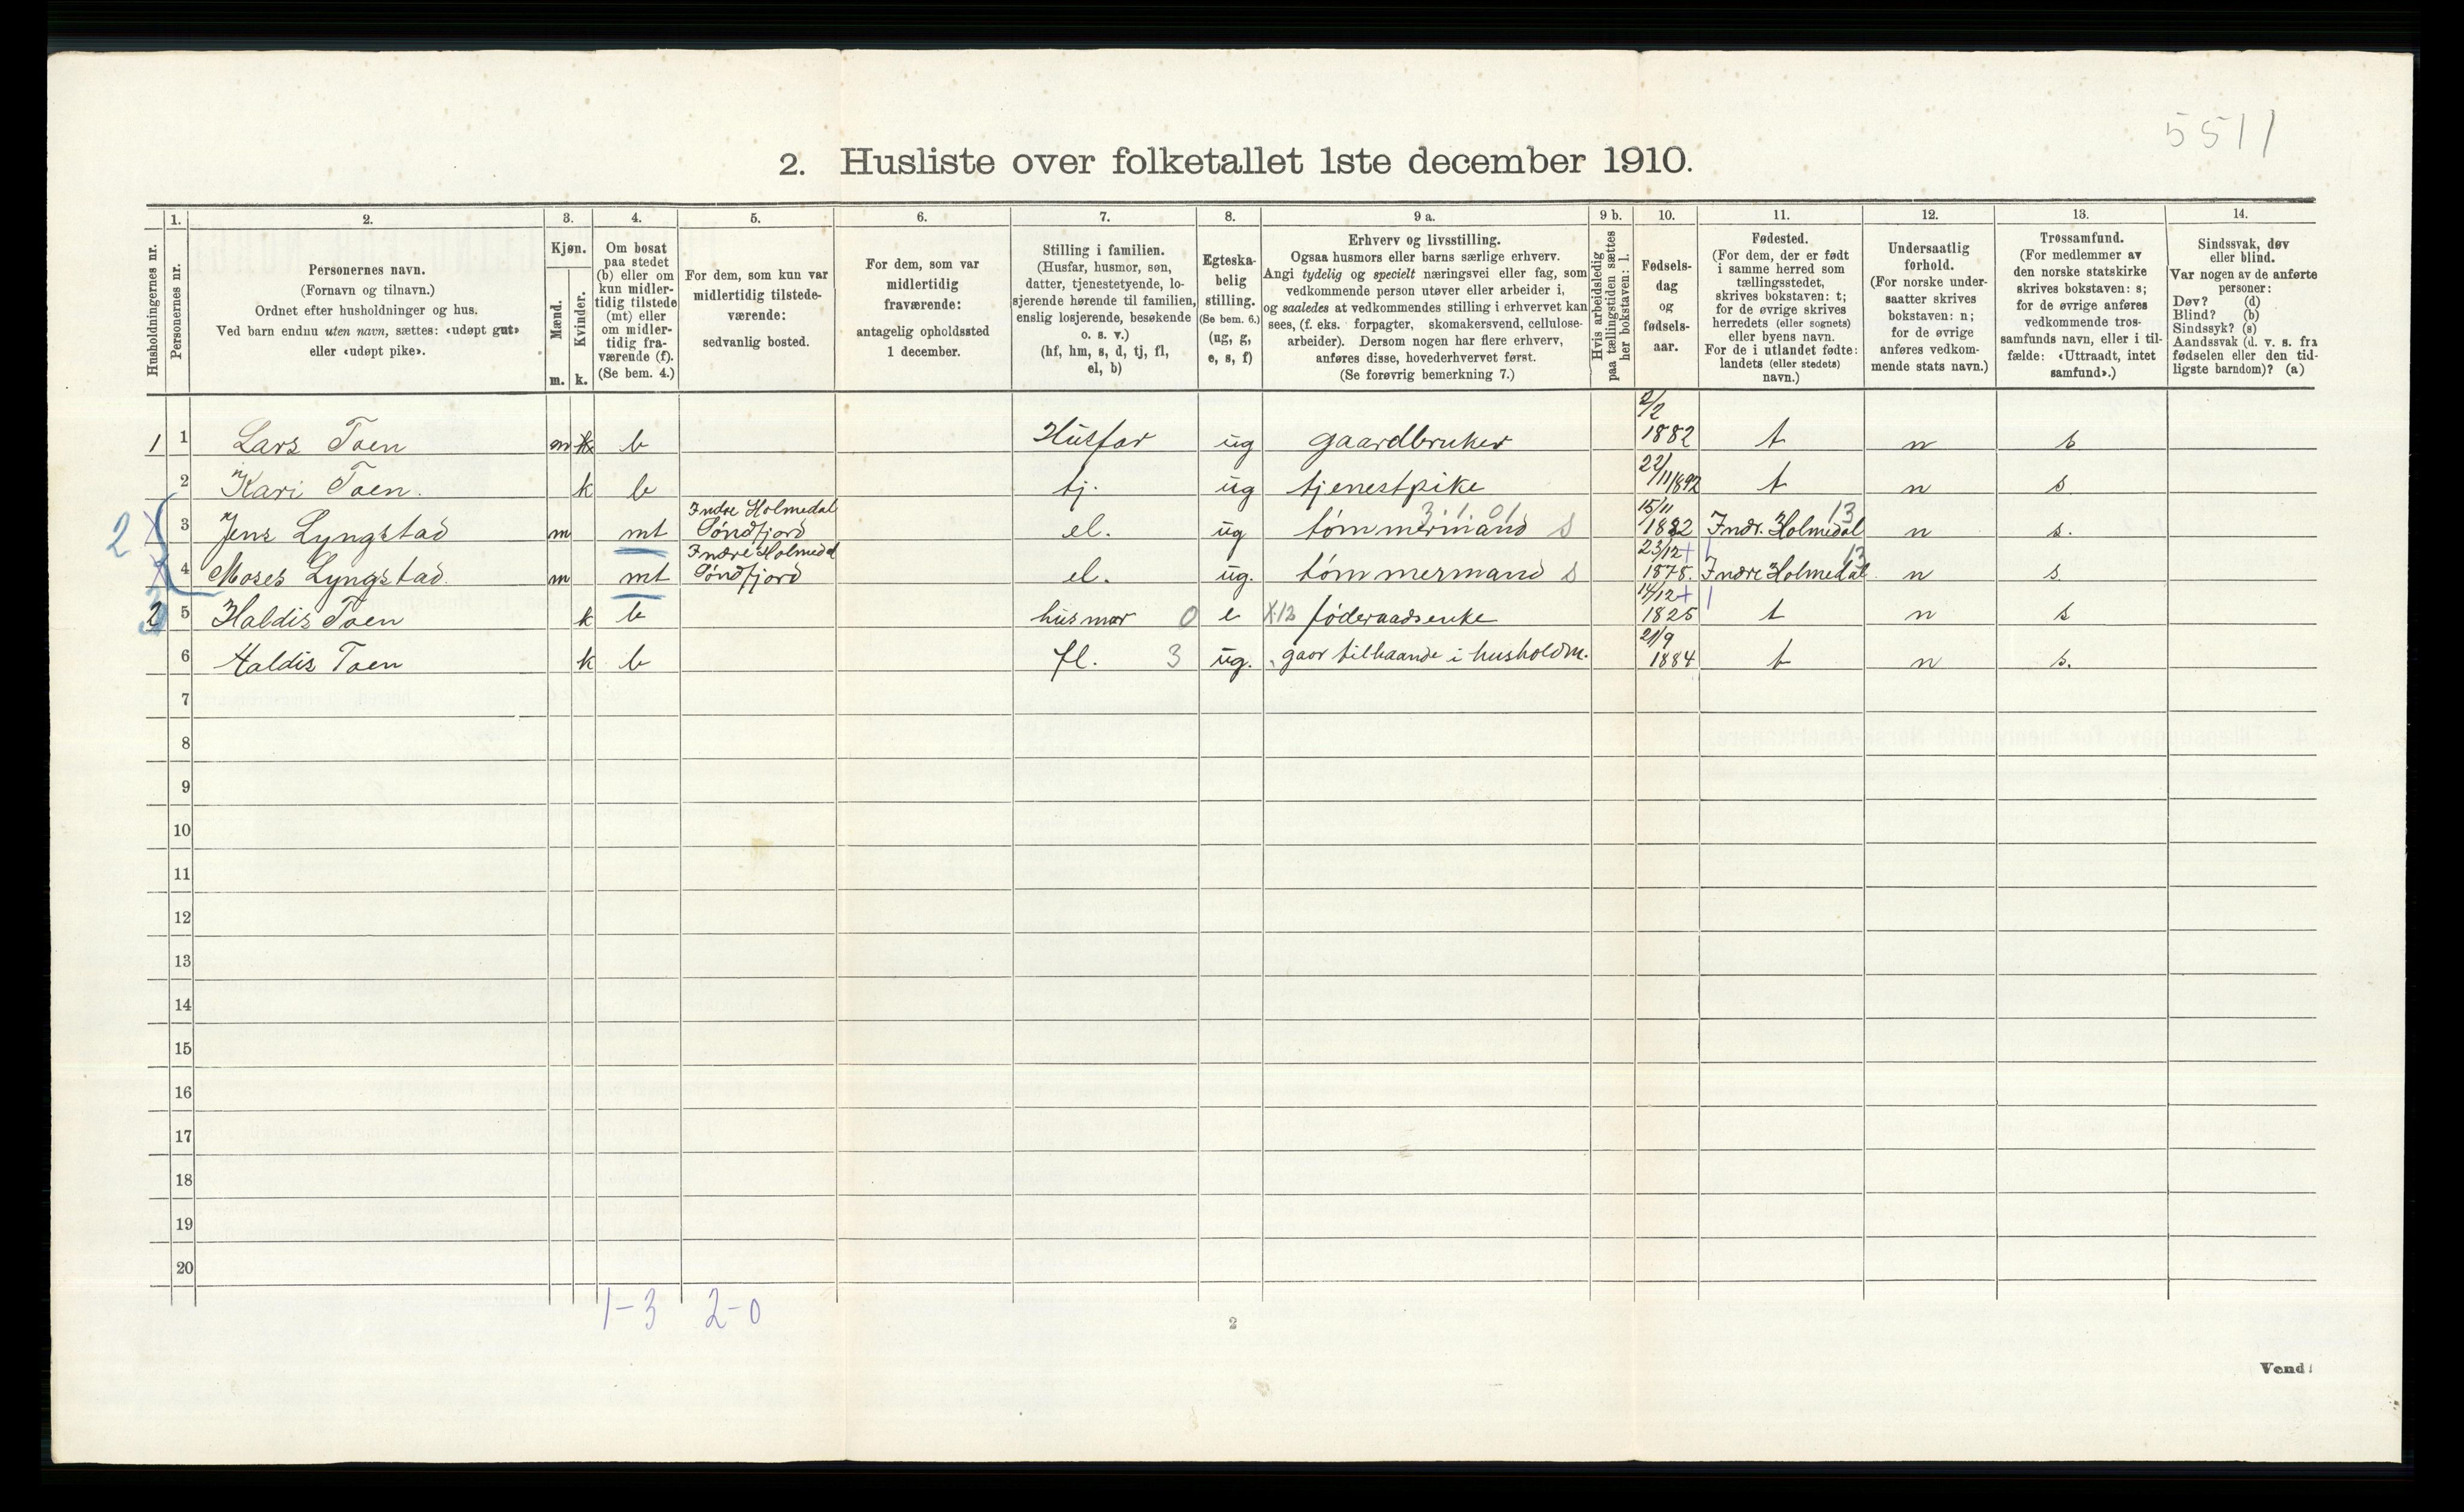 5511
2. Husliste over folketallet 1ste december 1910.
Husholdningernes nr.
1.
Personernes nr.
2.
Personernes navn.
(Fornavn og tilnavn.)
Ordnet efter husholdninger og hus.
Ved barn endnu uten navn, sættes: «udøpt gut»
eller «udøpt pike».
3.
Kjøn.
Mænd.
Kvinder.
m. k.
4.
Om bosat
paa stedet
(b) eller om
kun midler-
tidig tilstede
(mt) eller
om midler-
tidig fra-
værende (f).
(Se bem. 4.)
5.
For dem, som kun var
midlertidig tilstede-
værende:
sedvanlig bosted.
6.
For dem, som var
midlertidig
fraværende:
antagelig opholdssted
1 december.
7.
Stilling i familien.
(Husfar, husmor, søn,
datter, tjenestetyende, lo-
sjerende hørende til familien,
enslig losjerende, besøkende
o. s. v.)
(hf, hm, s, d, tj, fl,
el, b)
8.
Egteska-
belig
stilling.
(Se bem. 6.)
(ug, g,
e, s, f)
9 a.
Erhverv og livsstilling.
Ogsaa husmors eller barns særlige erhverv.
Angi tydelig og specielt næringsvei eller fag, som
vedkommende person utøver eller arbeider i,
og saaledes at vedkommendes stilling i erhvervet kan
sees, (f. eks. forpagter, skomakersvend, cellulose-
arbeider). Dersom nogen har flere erhverv,
anføres disse, hovederhvervet først.
(Se forøvrig bemerkning 7.)
9 b.
Hvis arbeidsledig
paa tællingstiden sættes
her bokstaven: l.
10.
Fødsels-
dag
og
fødsels-
aar.
11.
Fødested.
(For dem, der er født
i samme herred som
tællingsstedet,
skrives bokstaven: t;
for de øvrige skrives
herredets (eller sognets)
eller byens navn.
For de i utlandet fødte:
landets (eller stedets)
navn.)
12.
Undersaatlig
forhold.
(For norske under-
saatter skrives
bokstaven: n;
for de øvrige
anføres vedkom-
mende stats navn.)
13.
Trossamfund.
(For medlemmer av
den norske statskirke
skrives bokstaven: s;
for de øvrige anføres
vedkommende tros-
samfunds navn, eller i til-
fælde: «Uttraadt, intet
samfund».)
14.
Sindssvak, døv
eller blind.
Var nogen av de anførte
personer:
Døv? (d)
Blind? (b)
Sindssyk? (s)
Aandssvak (d. v. s. fra
fødselen eller den tid-
ligste barndom)? (a)
1 1 Lars Toen m k b Husfar ug gaardbruker 2/2 1882 t n s
2 Kari Toen. k b tj. ug tjenestpike 22/11 1892 t n s
2 3 Jens Lyngstad m mt Indre Holmedal Søndfjord el. ug tømmermand s 3.1.01 15/11 1882 Indr. Holmedal 13 n s.
4 Moses Lyngstad m mt Indre Holmedal Søndfjord el. ug. tømmermand s 23/12 1878. Indre Holmedal 13 n s
2 5 Haldis Toen k b husmor 0 e X.13 føderaadsenke 14/12 1825 t n s
6 Haldis Toen k b fl. 3 ug. gaar tilhaande i husholdn. 21/9 1884 t n s.
7
8
9
10
11
12
13
14
15
16
17
18
19
20
1-3 2-0
2
Vend!